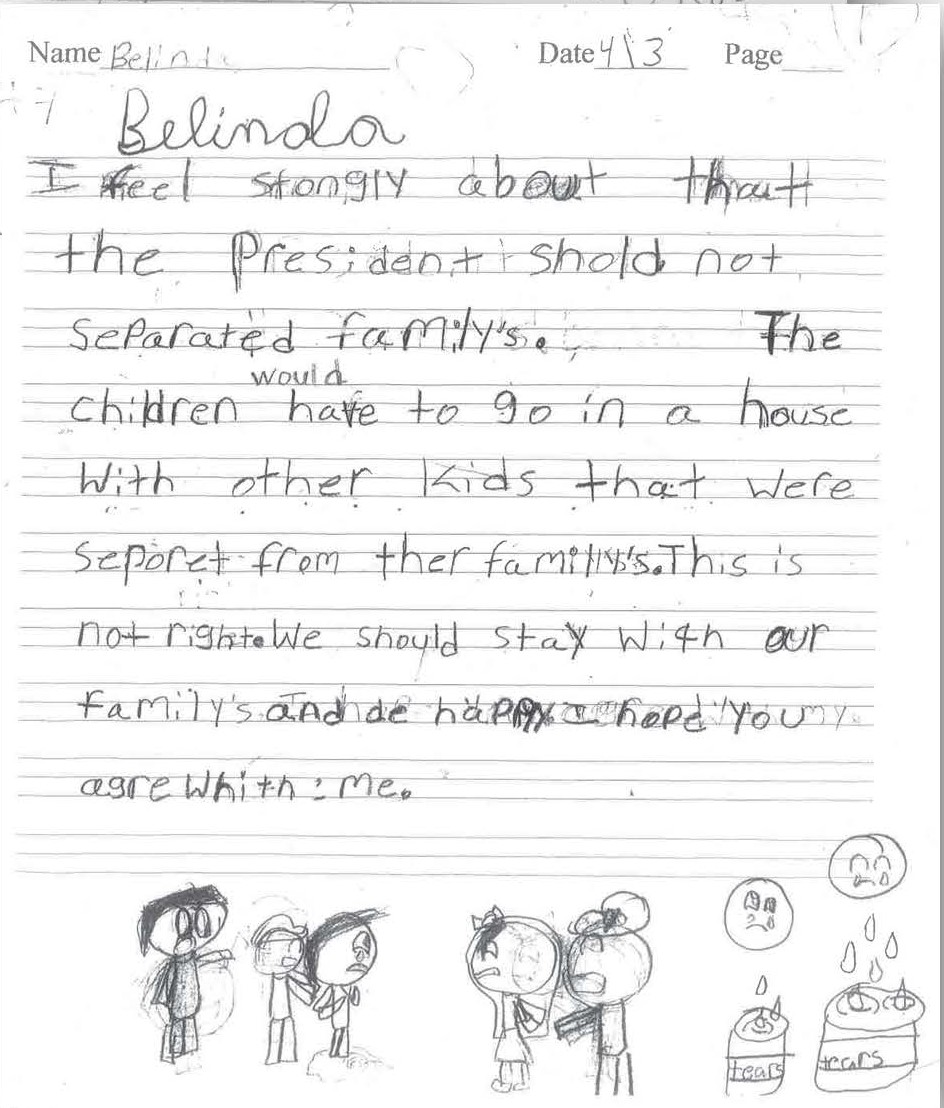 Name Belinda Date 4\3 Page
Belinda
I feel stongly about thatt
the President shold not
separated family's. The
would
children have to go in a house
With other Kids that were
seporet from ther family's. This is
not right. We should stay with our
family's and de happy I hope you
agre Whith : me.
tears
tears